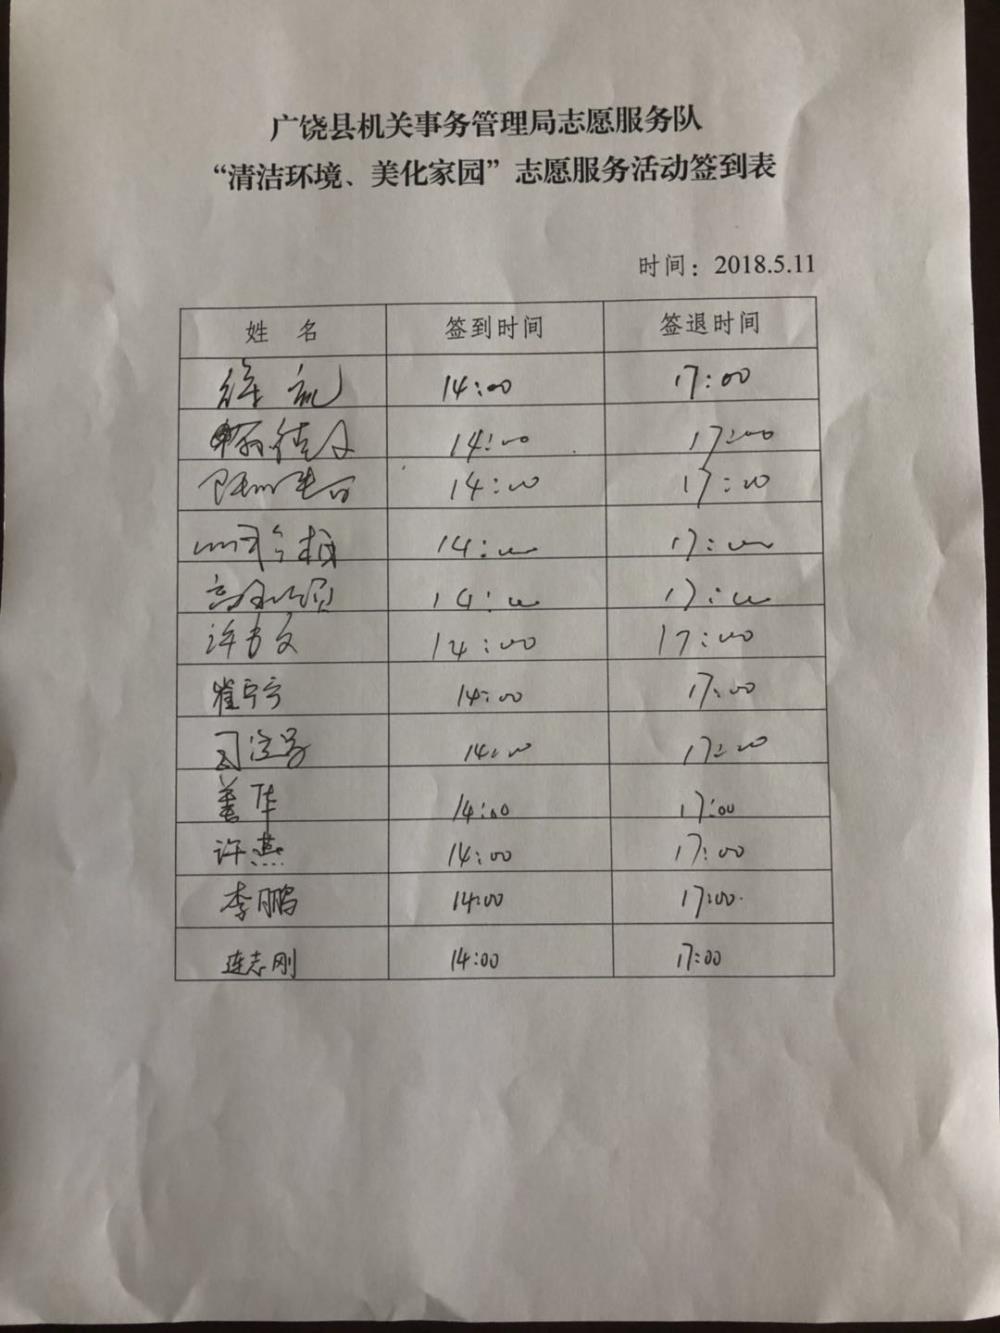 广饶县机关事务管理局志愿服务队
“清洁环境、美化家园”志愿服务活动签到表
时间：2018.5.11
姓 名 签到时间 签退时间
14:00 17:00
14:00 17:00
14:00 17:00
14:00 17:00
14:00 17:00
许 文 14:00 17:00
崔宁宁 14:00 17:00
14:00 17:00
姜华 14:00 17:00
许燕 14:00 17:00
李鹏 14:00 17:00
连志刚 14:00 17:00